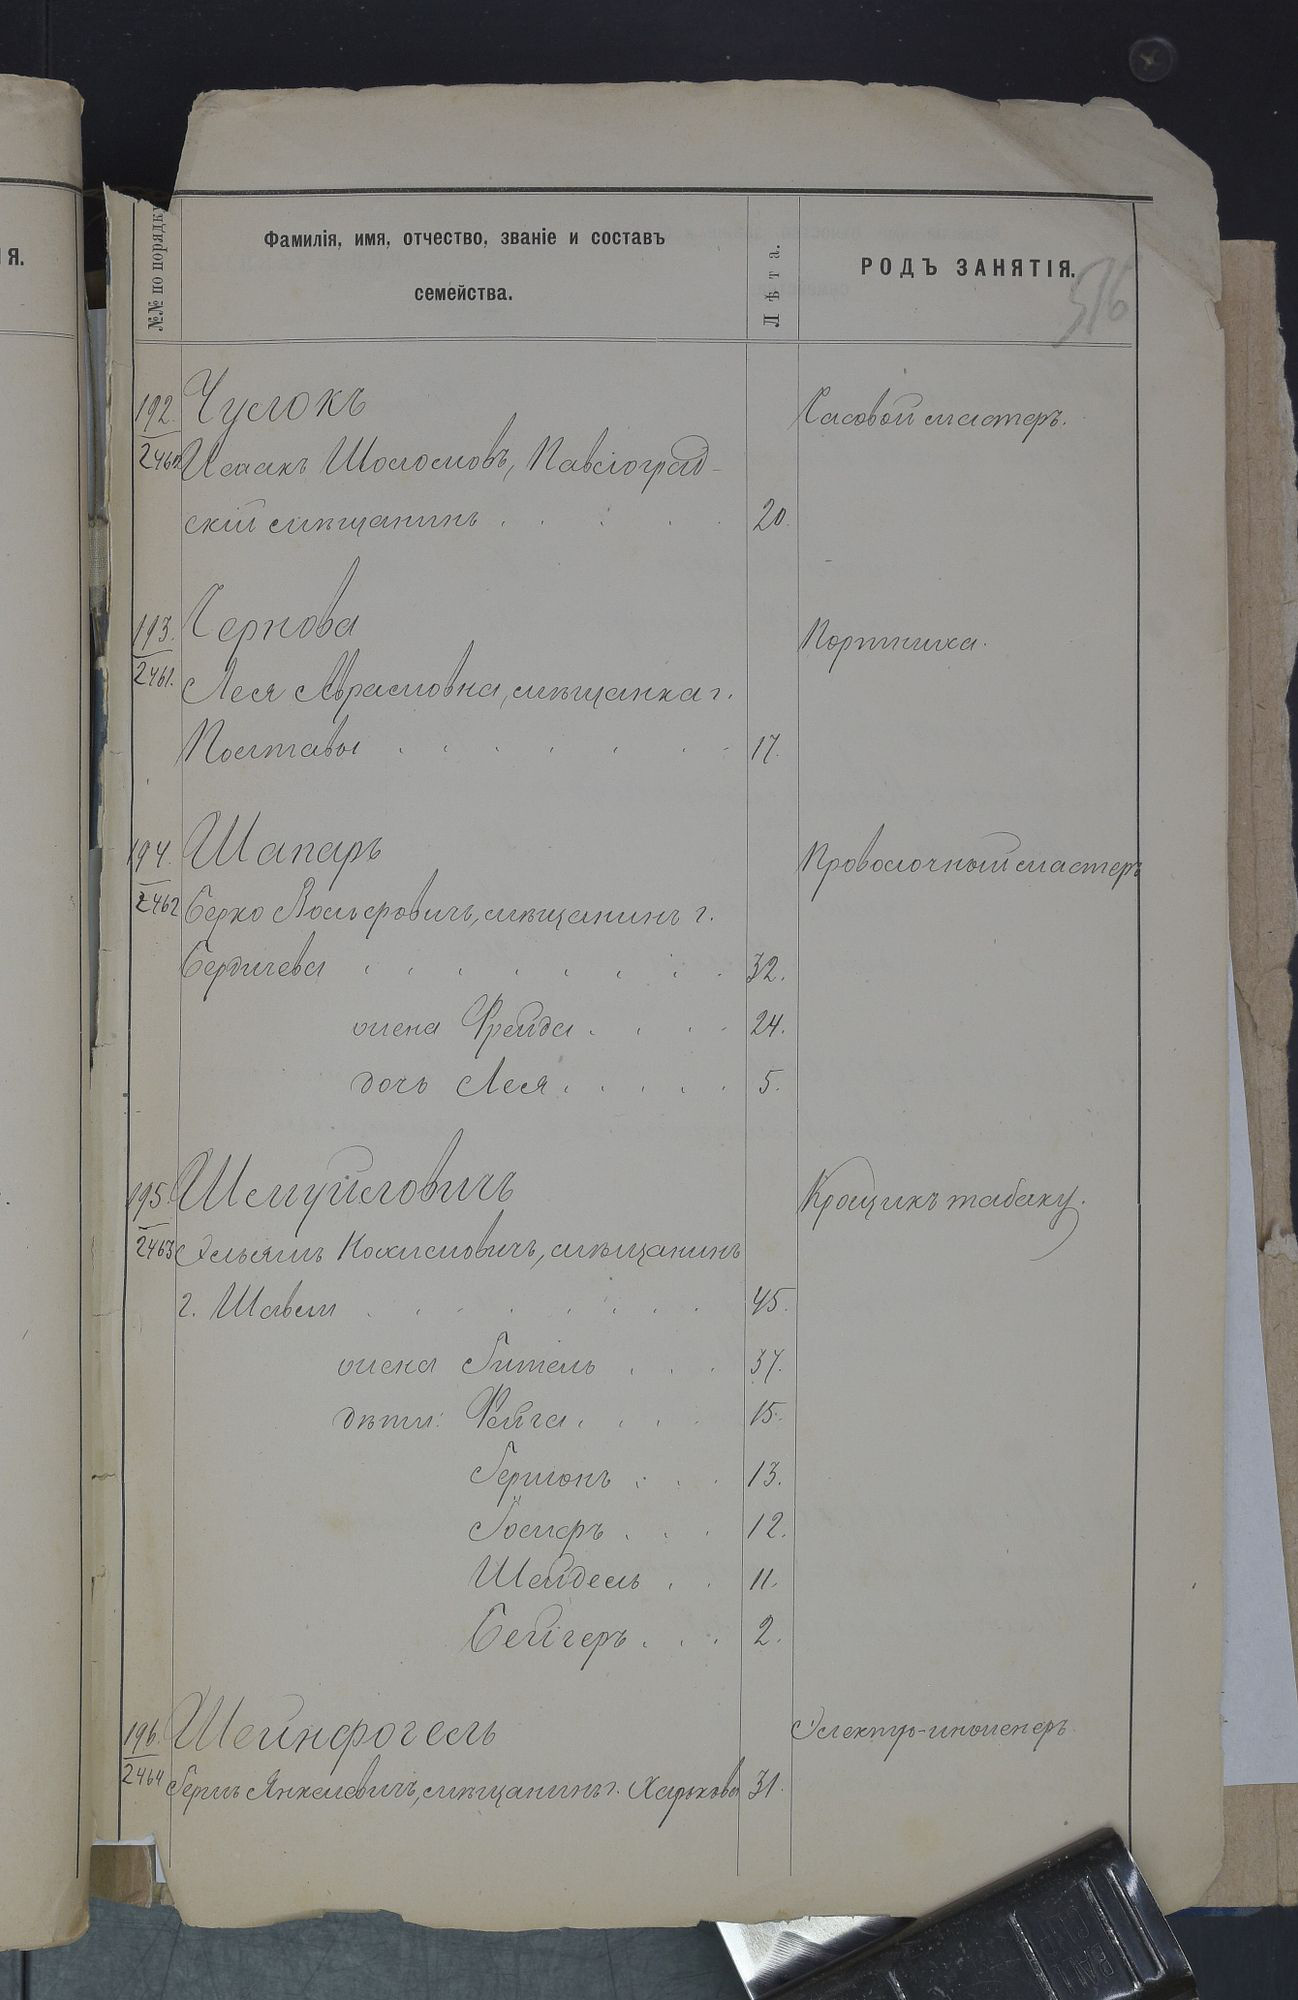 Я.
№№ по порядку
Фамилія, имя, отчество, званіе и составъ
семейства.
Лѣта.
РОДЪ ЗАНЯТІЯ.
516
192. Чуслокъ Часовой мастеръ.
2460 Исаакъ Шоломовъ, Павлоград-
скій мѣщанинъ 20.
193. Чернова Портниха.
2461. Лея Абрамовна, мѣщанка г.
Полтавы 17.
194. Шапаръ Проволочный мастеръ
2462 Берко Вольфовичъ, мѣщанинъ г.
Бердичева 32.
жена Фрейда 24.
дочь Лея 5.
195. Шмуйловичъ Крощикъ табаку.
2463 Эльяшъ мѣщанинъ
г. Шавли 45.
жена Гитель 37.
дѣти: Фейга 15.
Гершонъ 13.
12.
Шейдель 11.
Бейгеръ 2.
196. Шейнфогель Электро-инженеръ.
2464 Гершъ Янкелевичъ, мѣщанинъ г. Харькова 31.